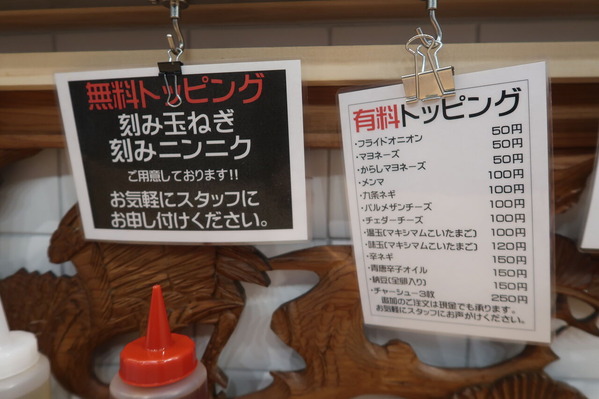 無料トッピング
刻み玉ねぎ
刻みニンニク
ご用意しております!!
お気軽にスタッフに
お申し付けください。
有料トッピング
・フライドオニオン 50円
・マヨネーズ 50円
・からしマヨネーズ 50円
・メンマ 100円
・九条ネギ 100円
・パルメザンチーズ 100円
・チェダーチーズ 100円
・温玉(マキシマムこいたまご) 100円
・味玉(マキシマムこいたまご) 120円
・辛ネギ 150円
・青唐辛子オイル 150円
・納豆(全卵入り) 150円
・チャーシュー3枚 250円
追加のご注文は現金でも承ります。
お気軽にスタッフにお声がけください。